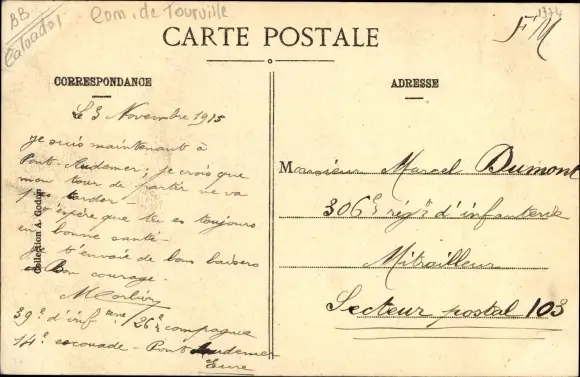 BB
Calvados
Com. de Tourville
1374
FM
CARTE POSTALE
CORRESPONDANCE
Le 3 Novembre 1915
Je suis maintenant à
Pont-Audemer; je crois que
mon tour de partir ne va
pas tarder.
J'espère que tu es toujours
en bonne santé.
Je t'envoie de bons baisers
et Bon courage.
39e d'inferie / 26e compagnie
14e escouade - Pont Audemer
Eure
Collection A. Godon
ADRESSE
Monsieur Marcel Dumont
306e régt d'infanterie
Mitrailleur
Secteur postal 103